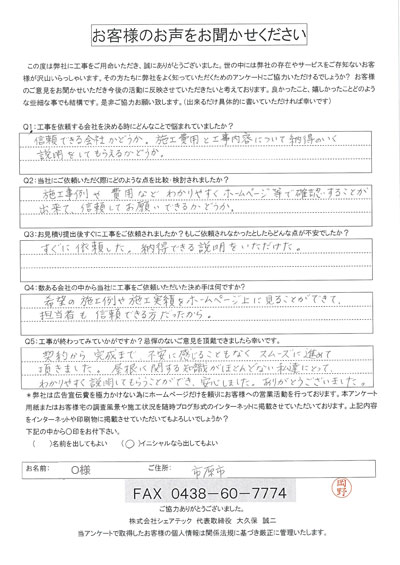 お客様のお声をお聞かせください
この度は弊社に工事をご用命いただき、誠にありがとうございました。世の中には弊社の存在やサービスをご存知ないお客
様が沢山いらっしゃいます。その方たちに弊社をよく知っていただくためのアンケートにご協力いただけるでしょうか？ お客様
のご意見をお聞かせいただき今後の活動に反映させていきたいと考えております。良かったこと、嬉しかったことどのよう
な些細な事でも結構です。是非ご協力お願い致します。（出来るだけ具体的に書いていただければ幸いです）
Q1：工事を依頼する会社を決める時にどんなことで悩まれていましたか？
信頼できる会社かどうか。施工費用と工事内容について納得のいく
説明をしてもらえるかどうか。
Q2：当社にご依頼いただく際にどのような点を比較・検討されましたか？
施工事例や費用など わかりやすくホームページ等で確認することが
出来て、信頼してお願いできるかどうか。
Q3：お見積り提出後すぐに工事をご依頼されましたか？もしご依頼されなかったとしたらどんな点が不安でしたか？
すぐに依頼した。納得できる説明をいただけた。
Q4：数ある会社の中から当社に工事をご依頼いただいた決め手は何ですか？
希望の施工例や施工実績をホームページ上に見ることができて、
担当者も信頼できる方だったから。
Q5：工事が終わってみていかがですか？忌憚のないご意見を頂戴できましたら幸いです。
契約から完成まで 不安に感じることもなく スムーズに進めて
頂きました。屋根に関する知識がほとんどない私達にとって、
わかりやすく説明してもらうことができ、安心しました。ありがとうございました。
＊弊社は広告宣伝費を極力かけない為にホームページだけを頼りにお客様への営業活動を行っております。本アンケート
用紙またはお客様宅の調査風景や施工状況を随時ブログ形式のインターネットに掲載させていただいております。上記内容
をインターネットや印刷物に掲載させていただいてもよろしいでしょうか？
下記の中から〇印をお付下さい。
（ ）名前を出してもよい （〇）イニシャルなら出してもよい
お名前： O様 ご住所： 市原市
岡野
FAX 0438-60-7774
ご協力ありがとうございました。
株式会社シェアテック 代表取締役 大久保 誠二
当アンケートで取得したお客様の個人情報は関係法規に基づき厳正に管理いたします。